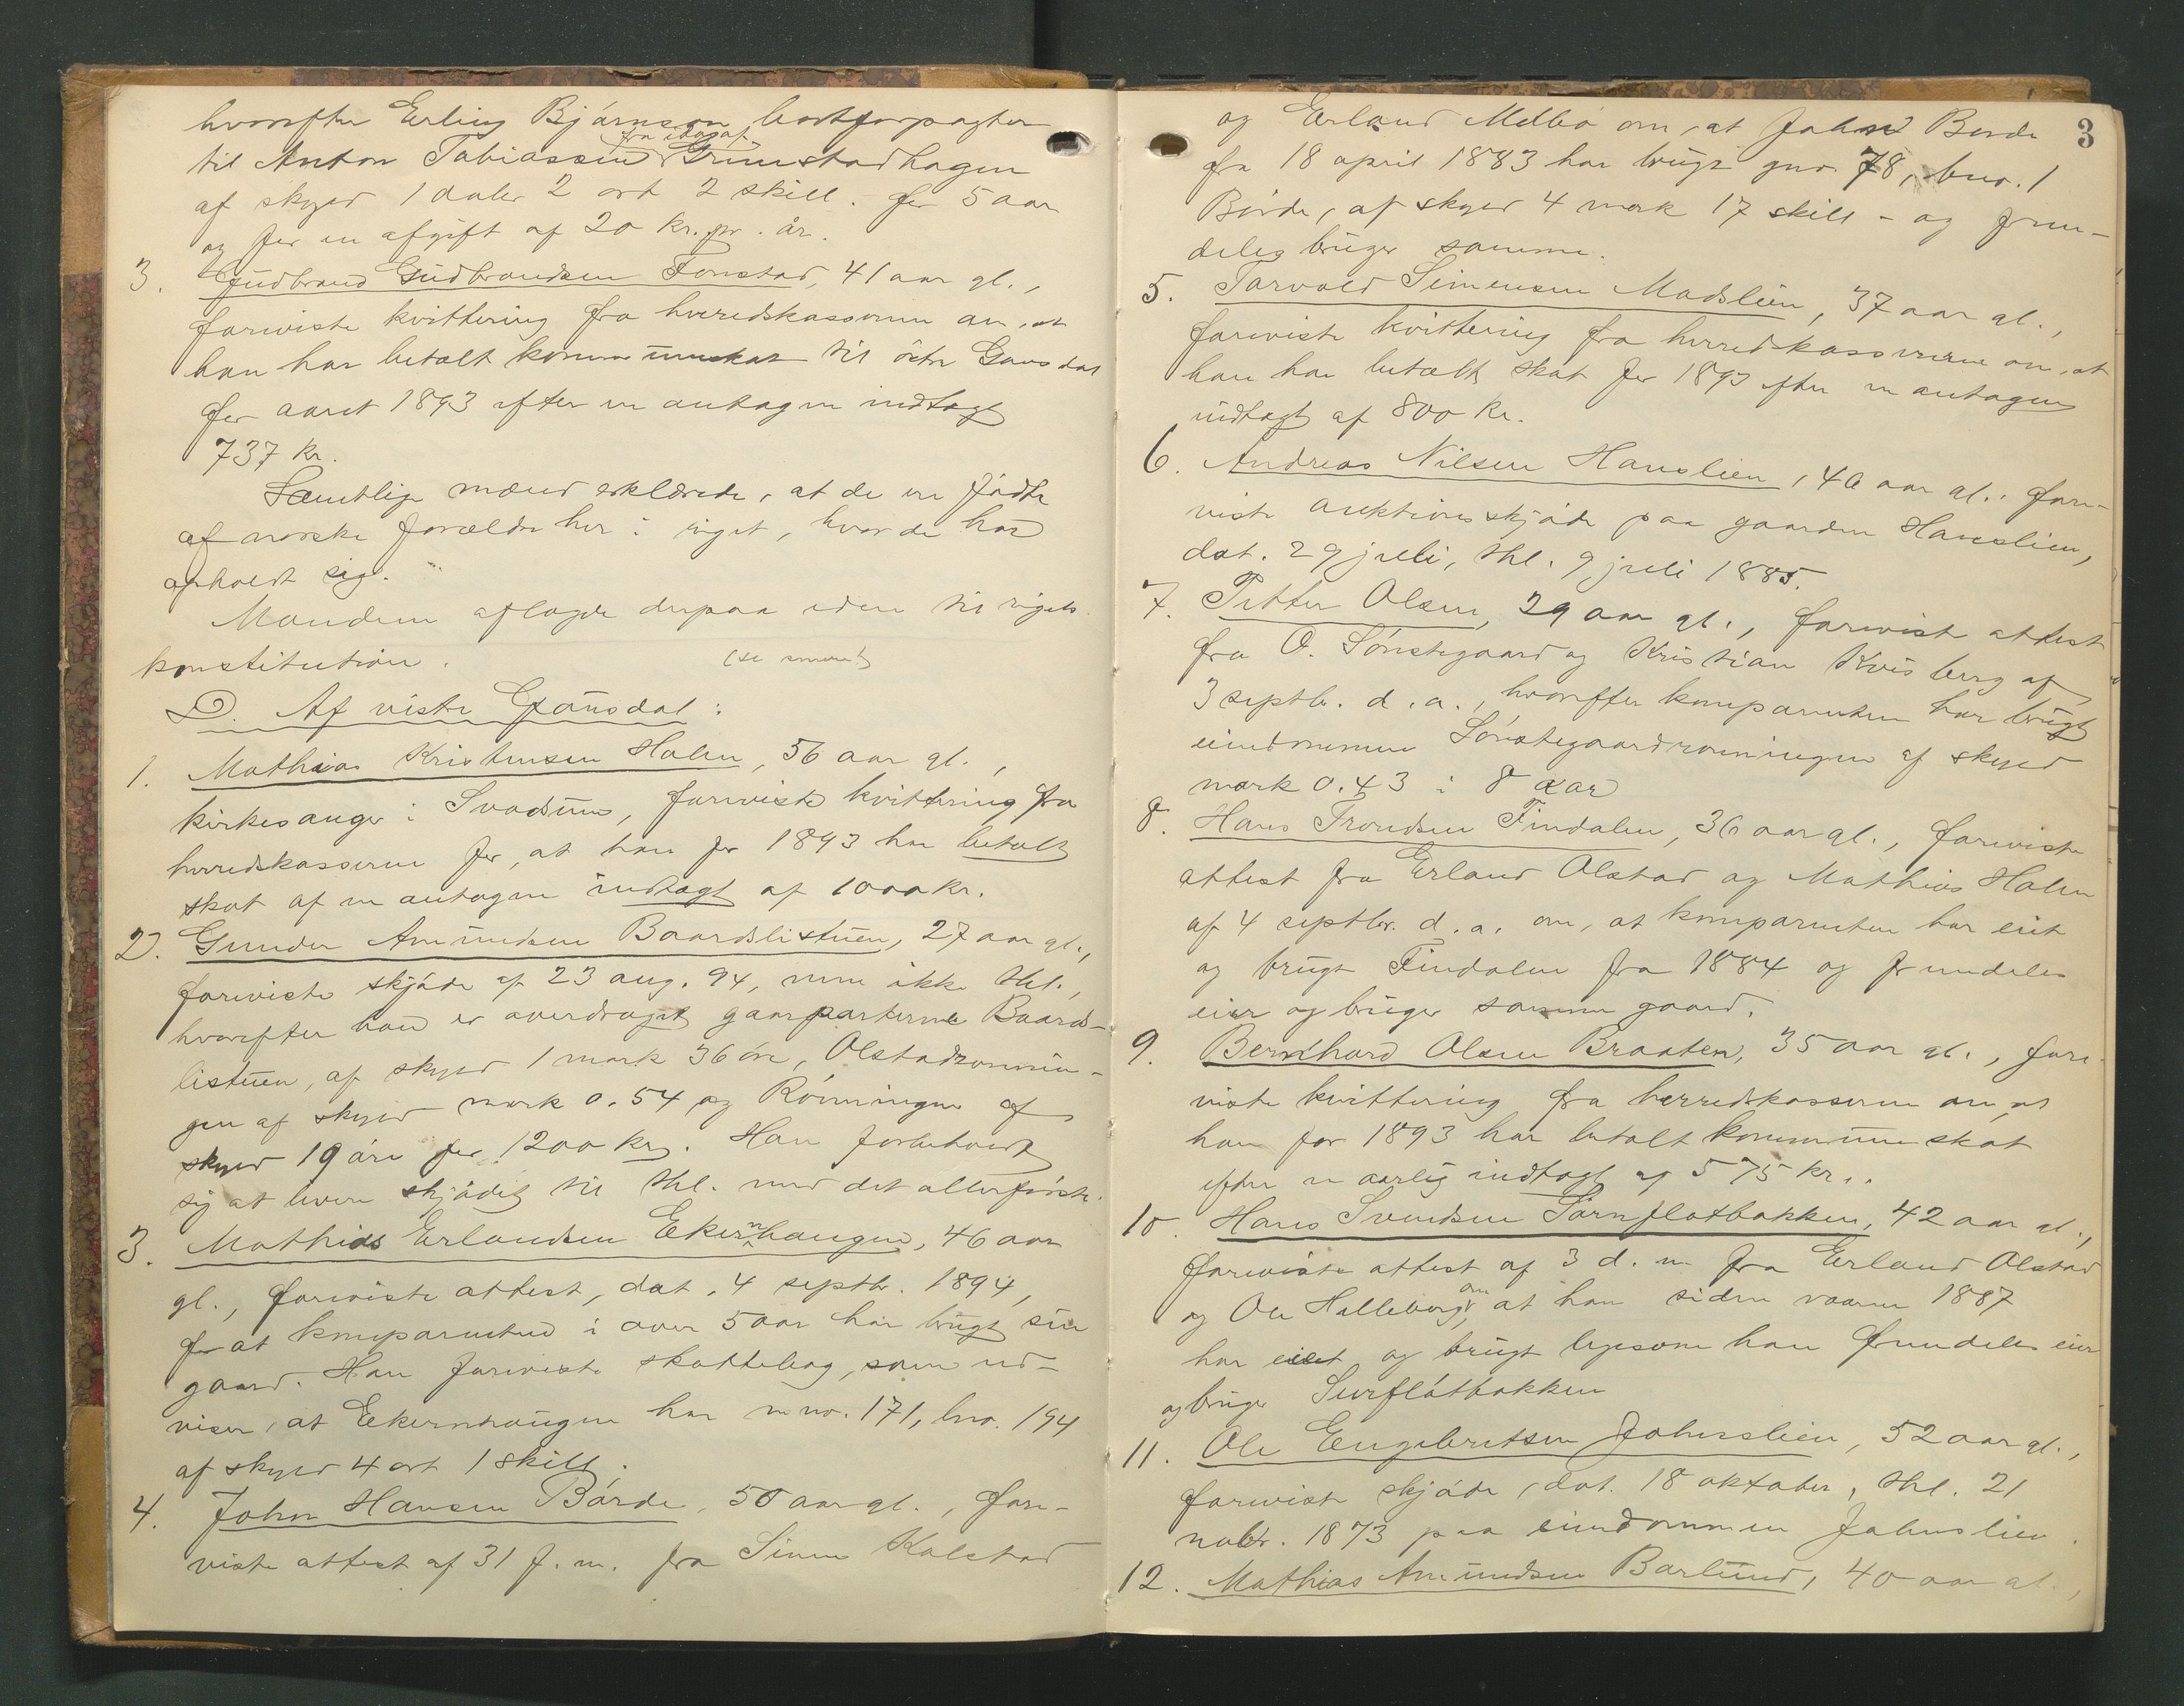 hvorefter Erling Bjørnson bortforpagter
til Anton Tobiassen fra idag af Grimstadhagen
af skyld 1 daler 2 ort 2 skill. for 5 aar
og for en afgift af 20 kr. pr. år.
3. Gudbrand Gudbrandsen Fonstad, 41 aar gl.,
foreviste kvittering fra herredskassereren om, at
han har betalt kommuneskat til östre Gausdal
for aaret 1893 efter en antagen indtægt
737 kr.
Samtlige mænd erklærede, at de ere fødte
af norske forældre her i riget, hvor de har
opholdt sig.
Mændene aflagde derpaa eden til rigets
konstitution. (se senere!)
D. Af vestre Gausdal:
1. Mathias Kristensen Holen, 56 aar gl.,
kirkesanger i Svadsum, foreviste kvittering fra
herredskassereren for, at han for 1893 har betalt
skat af en antagen indtægt af 1000 kr.
2. Gunder Amundsen Baardslistuen, 27 aar gl.,
foreviste skjøde af 23 aug. 94, men ikke thl.,
hvorefter han er overdraget gaarparterne Baards-
listuen, af skyld 1 mark 36 öre, Olstadrönnin-
gen af skyld mark 0.54 og Rönningen af
skyld 19 öre for 1200 kr. Han forbeholdt
sig at levere skjödet til thl. med det allerförste.
3. Mathias Erlandsen Ekernhaugen, 46 aar
gl., foreviste attest, dat. 4 septbr. 1894,
for at komparenten i over 5 aar har brugt sin
gaard. Han foreviste skattebog, som ud-
viser, at Ekernhaugen har mno. 171, lno. 194
af skyld 4 ort 1 skill.
4. John Hansen Börde, 50 aar gl., fore-
viste attest af 31 f. m. fra Simen Kalstad
3
og Erland Melbö om, at John Börde
fra 18 april 1883 har brugt gno. 78, bno. 1
Börde, af skyld 4 mark 17 skill - og frem-
deles bruger samme.
5. Torvald Simensen Madslien, 37 aar gl.,
foreviste kvittering fra herredskassereren om, at
han har betalt skat for 1893 efter en antagen
indtægt af 800 kr.
6. Andreas Nilsen Hanslien, 40 aar gl., fore-
viste auktionsskjöde paa gaarden Hanslien,
dat. 29 juli, thl. 9 juli 1885.
7. Petter Olsen, 29 aar gl., foreviste attest
fra O. Sönstegaard og Kristian Kvisberg af
3 septbr. d. a., hvorefter komparenten har brugt
eiendommen Sönstegaardrönningen af skyld
mark 0.43 i 8 aar
8. Hans Trondsen Findalen, 36 aar gl., foreviste
attest fra Erland Olstad og Mathias Holen
af 4 septbr. d. a. om, at komparenten har eiet
og brugt Findalen fra 1884 og fremdeles
eier og bruger samme gaard.
9. Bernhard Olsen Braaten, 35 aar gl., fore-
viste kvittering fra herredskassereren om, at
han for 1893 har betalt kommuneskat
efter en aarlig indtægt af 575 kr..
10. Hans Svendsen Sörnflotbakken, 42 aar gl.,
foreviste attest af 3 d. m. fra Erland Olstad
og Ole Helleberg, om at han siden vaaren 1887
har eiet og brugt ligesom han fremdeles eier
og bruger Surflötbakken
11. Ole Engebretsen Johnslien, 52 aar gl.,
foreviste skjöde, dat. 18 oktober, thl. 21
nobr. 1873 paa eiendommen Johnslien.
12. Mathias Amundsen Barlund, 40 aar gl.,